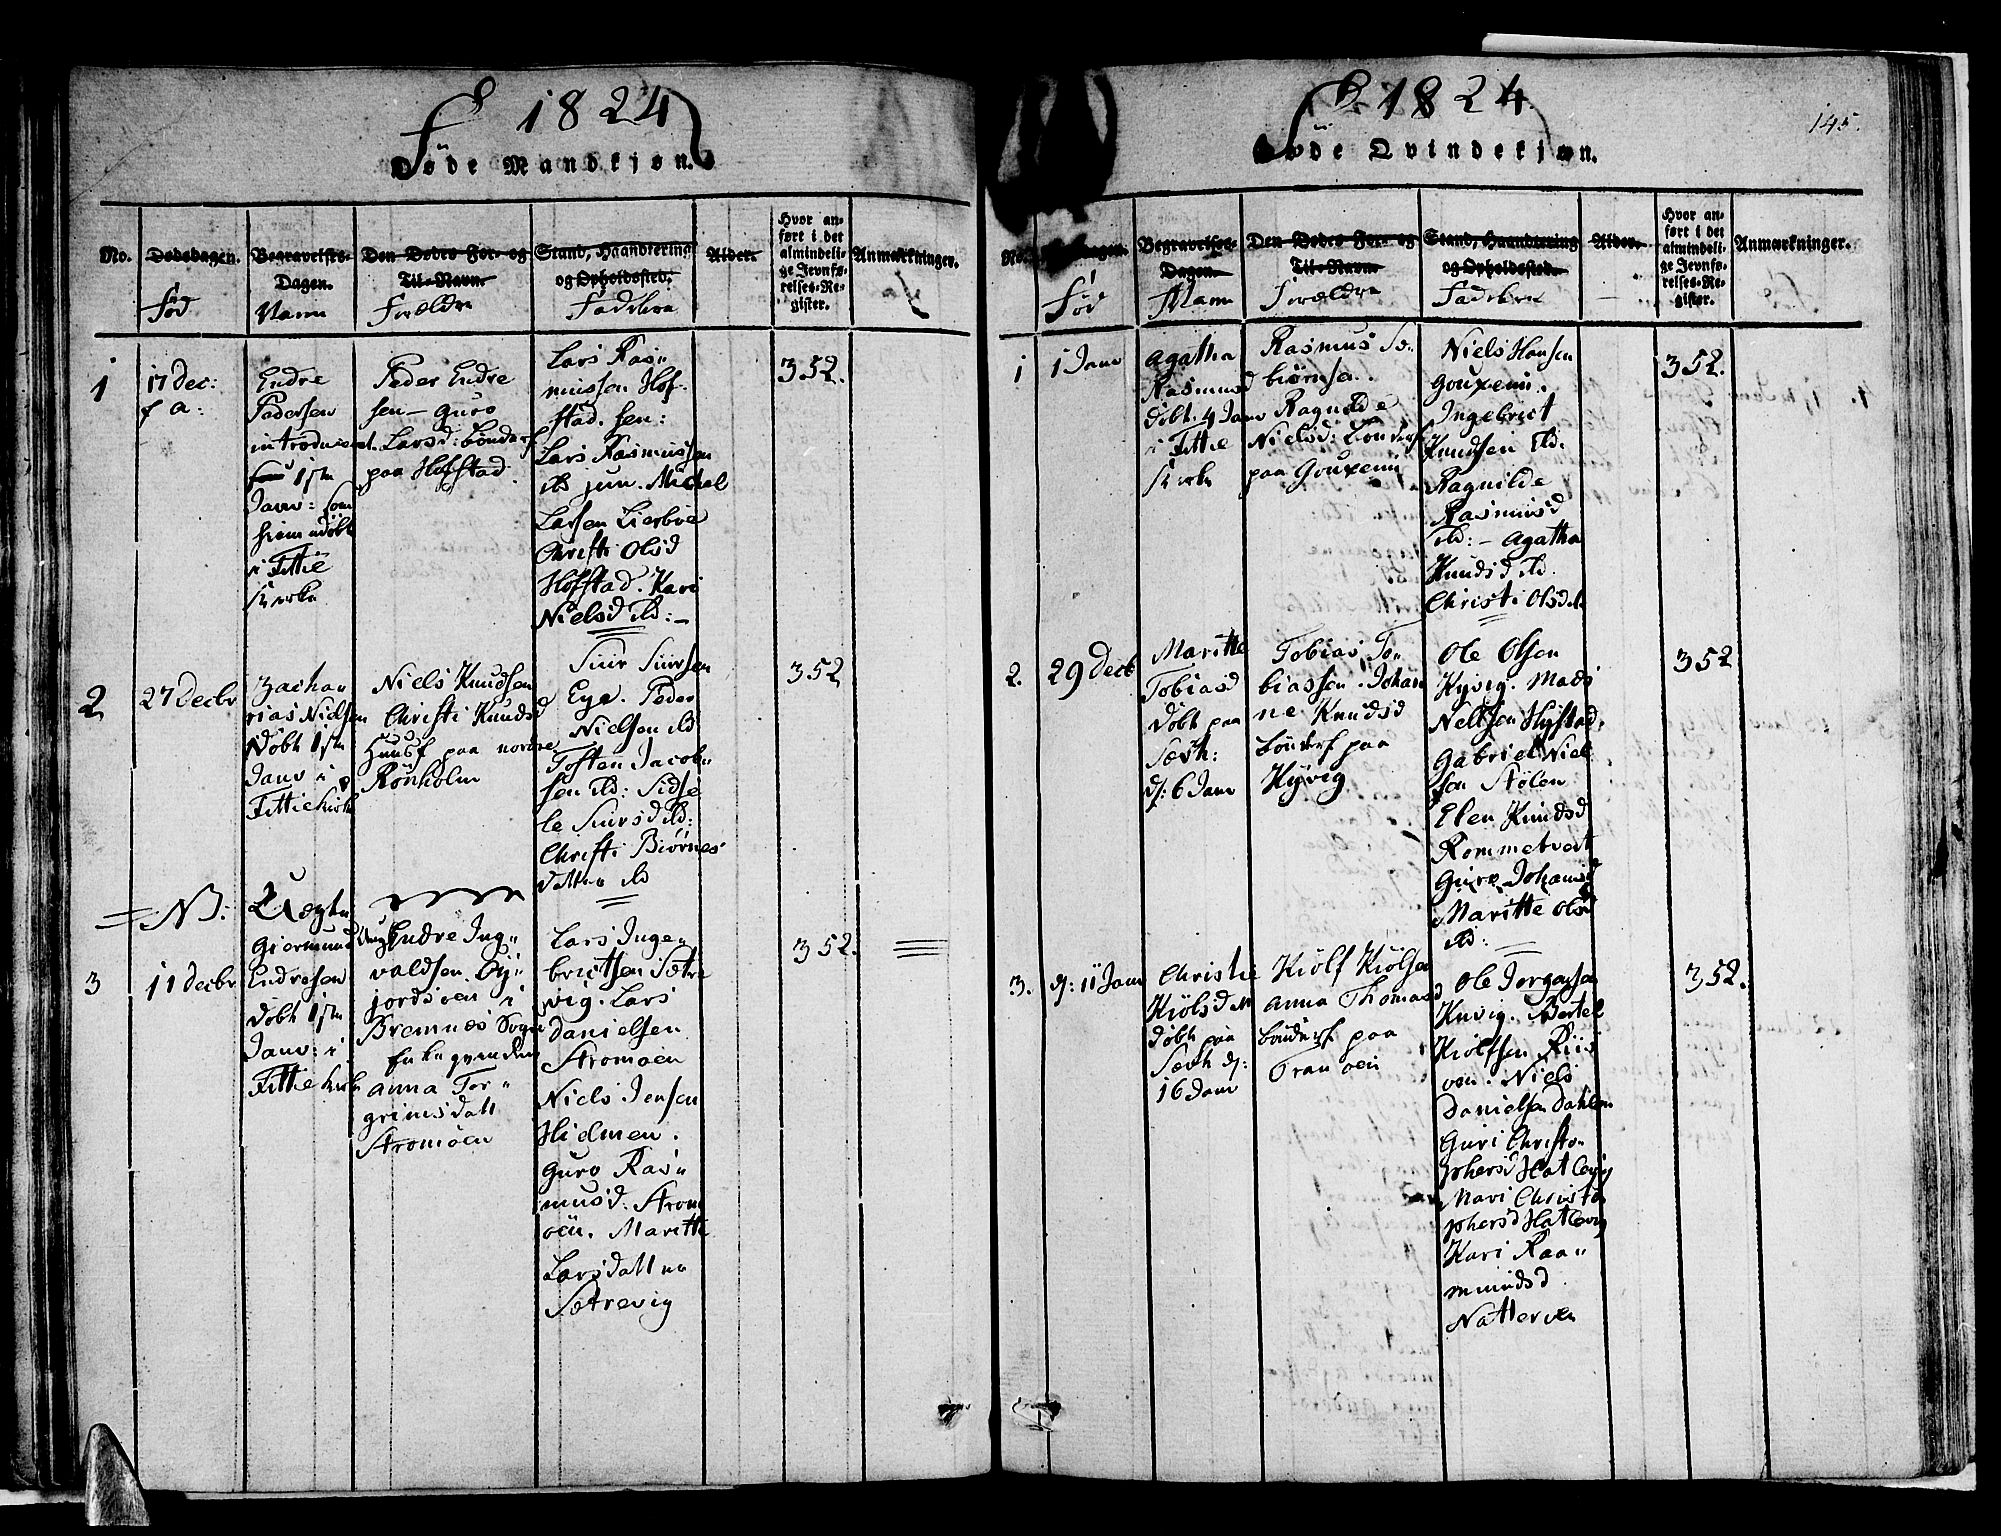 1824
Føde Mandkjøn.
No.
Dødsdagen.
Fød
Begravelses-
Dagen.
Navn
Den Dødes For- og
Til-Navn.
Forældre
Stand, Haandtering
og Opholdssted.
Faddere
Alder.
Hvor an-
ført i det
almindeli-
ge Jevnfø-
relses-Re-
gister.
Anmærkninger.
1
17 Dec:
f a:
Endre
Pedersen
introducert
1ste
Janv: som
hiemmdøbt
i Fittie
Kirke
Peder Endre
sen - Guro
Larsd: Bønderf
paa Hofstad.
Lars Ras„
mussen Hof-
stad. sen:
Lars Rasmussen
ibd jun. Michel
Larsen Lierboe
Christi Olsd
Hofstad. Kari
Nielsd ibd: -
352.
2
27 Decbr
Zacha„
rias Nielsen
døbt 1ste
Janv i
Fittie Kirke
Niels Knudsen
Christi Knudsd
Huusf paa nordre
Rønholm
Siur Siursen
Eye. Peder
Nielsen ibd
Tosten Jacob„
sen ibd: Sidse
le Siursd ibd:
Christi Biørnes
datter ibd
352
NB:
Uægte
3
11 Decbr
Giermund
Endresen
døbt 1ste
Janv: i
Fittie Kirke
Ungk Endre Ing„
valdsen
i
Bremnes Sogn
Anna Tor„
grimsdatt
Stromøen
Lars Inge„
brictsen Sætre
vig. Lars
Danielsen
Stromøen
Niels Jensen
Hielmen.
Guro Ras„
musd. Strom
øen. Maritte
Larsdatter
Sætrevig
352.
1824
145.
Føde Qvindekjøn.
No.
Fød
Begravelses-
Dagen.
Navn
Den Dødes For- og
Til-Navn
Forældre
Stand, Haandtering
og Opholdssted.
Faddere
Alder.
Hvor an-
ført i det
almindeli-
ge Jevnfø-
relses-Re-
gister.
Anmærkninger.
1
1 Janv
Agatha
Rasmusd
døbt 4 Janv
i Fittie
Kirke
Rasmus To„
biørnsen.
Ragnilde
Nielsd: Bønderf
paa Gouxemi
Niels Hansen
Gouxemi.
Ingebrict
Knudsen ibd.
Ragnilde
Rasmusd
ibd: - Agatha
Knudsd ibd
Christi Olsd ibd
352.
2.
29 Decb
Maritte
Tobiasd
døbt paa
Søvh:
d: 6 Janv
Tobias To„
biassen. Johan
ne Knudsd
Bønderf paa
Kyvig
Ole Olsen
Kyvig. Mads
Nielsen Hystad.
Gabriel Niel
sen Stølen
Elen Knudsd
Rommetvedt
Guro Johansd
Maritte Olsd
ibd:
352
3.
d: 11 Janv
Christie
Kiølsdatt
døbt paa
Søvh d:
16 Janv
Kiøl Kiølsen
Anna Thomasd
Bønderf paa
Tranøen
Ole Jørgensen
Kuvig. Bertel
Kiølsen Riis
øen. Niels
Danielsen Dahlen
Guri Christo„
phersd Hatlevig
Mari Christo
phersd Hatlevig
Kari Raa„
mundsd
Nattersøen
352.